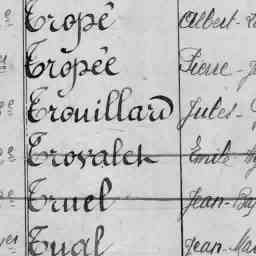 e Tropé Albert-
es Tropée Pierre-J
e Trouillard Jules-
e Trovalet Emile-Hy
e Truel Jean-Bap
yer Tual Jean-Mar